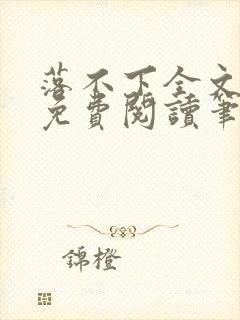 落不下全文
免費閱讀筆
錦橙